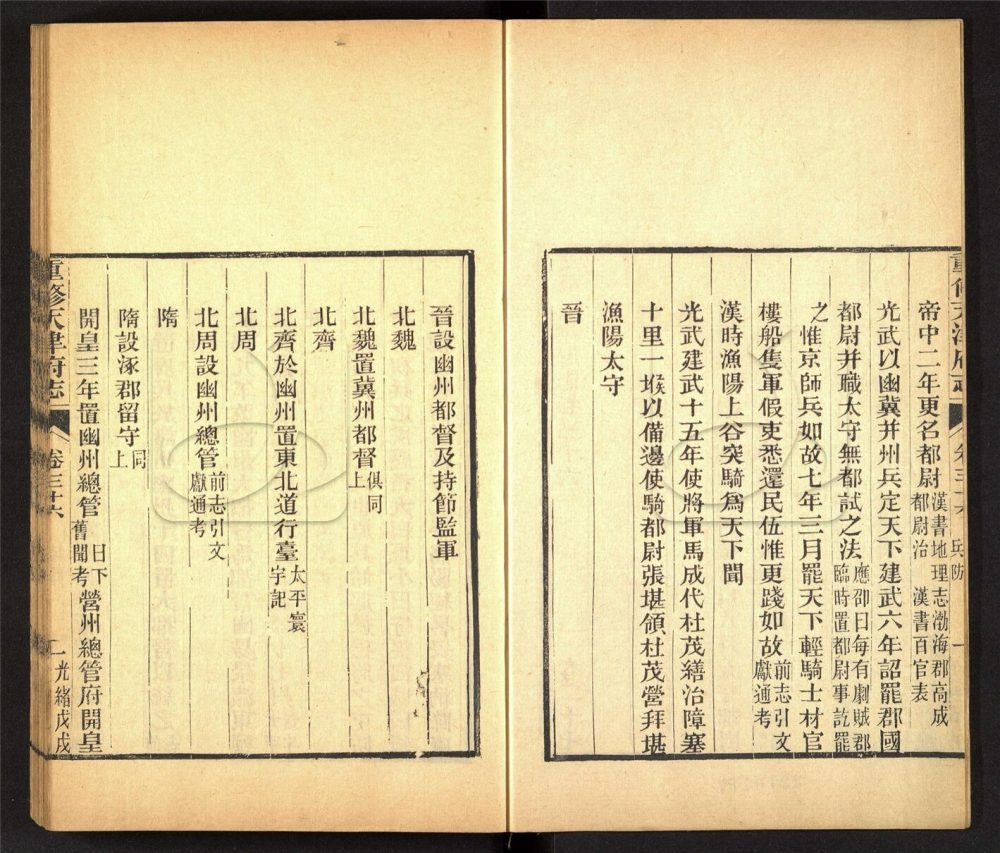 重修天津府志 卷三十六 兵防 一
帝中二年更名都尉漢書地理志渤海郡高成都尉治 漢書百官表
光武以幽冀并州兵定天下建武六年詔罷郡國
都尉并職太守無都試之法應卲曰每有劇賊郡臨時置都尉事訖罷
之惟京師兵如故七年三月罷天下輕騎士材官
樓船隻軍假吏悉還民伍惟更踐如故前志引文獻通考
漢時漁陽上谷突騎爲天下聞
光武建武十五年使將軍馬成代杜茂繕治障塞
十里一堠以備邊使騎都尉張堪領杜茂營拜堪
漁陽太守
晉
晉設幽州都督及持節監軍
北魏
北魏置冀州都督俱同上
北齊
北齊於幽州置東北道行臺太平寰宇記
北周
北周設幽州總管前志引文獻通考
隋
隋設涿郡留守同上
開皇三年置幽州總管日下舊聞考營州總管府開皇
重修天津府志 卷三十六 一 光緒戊戌